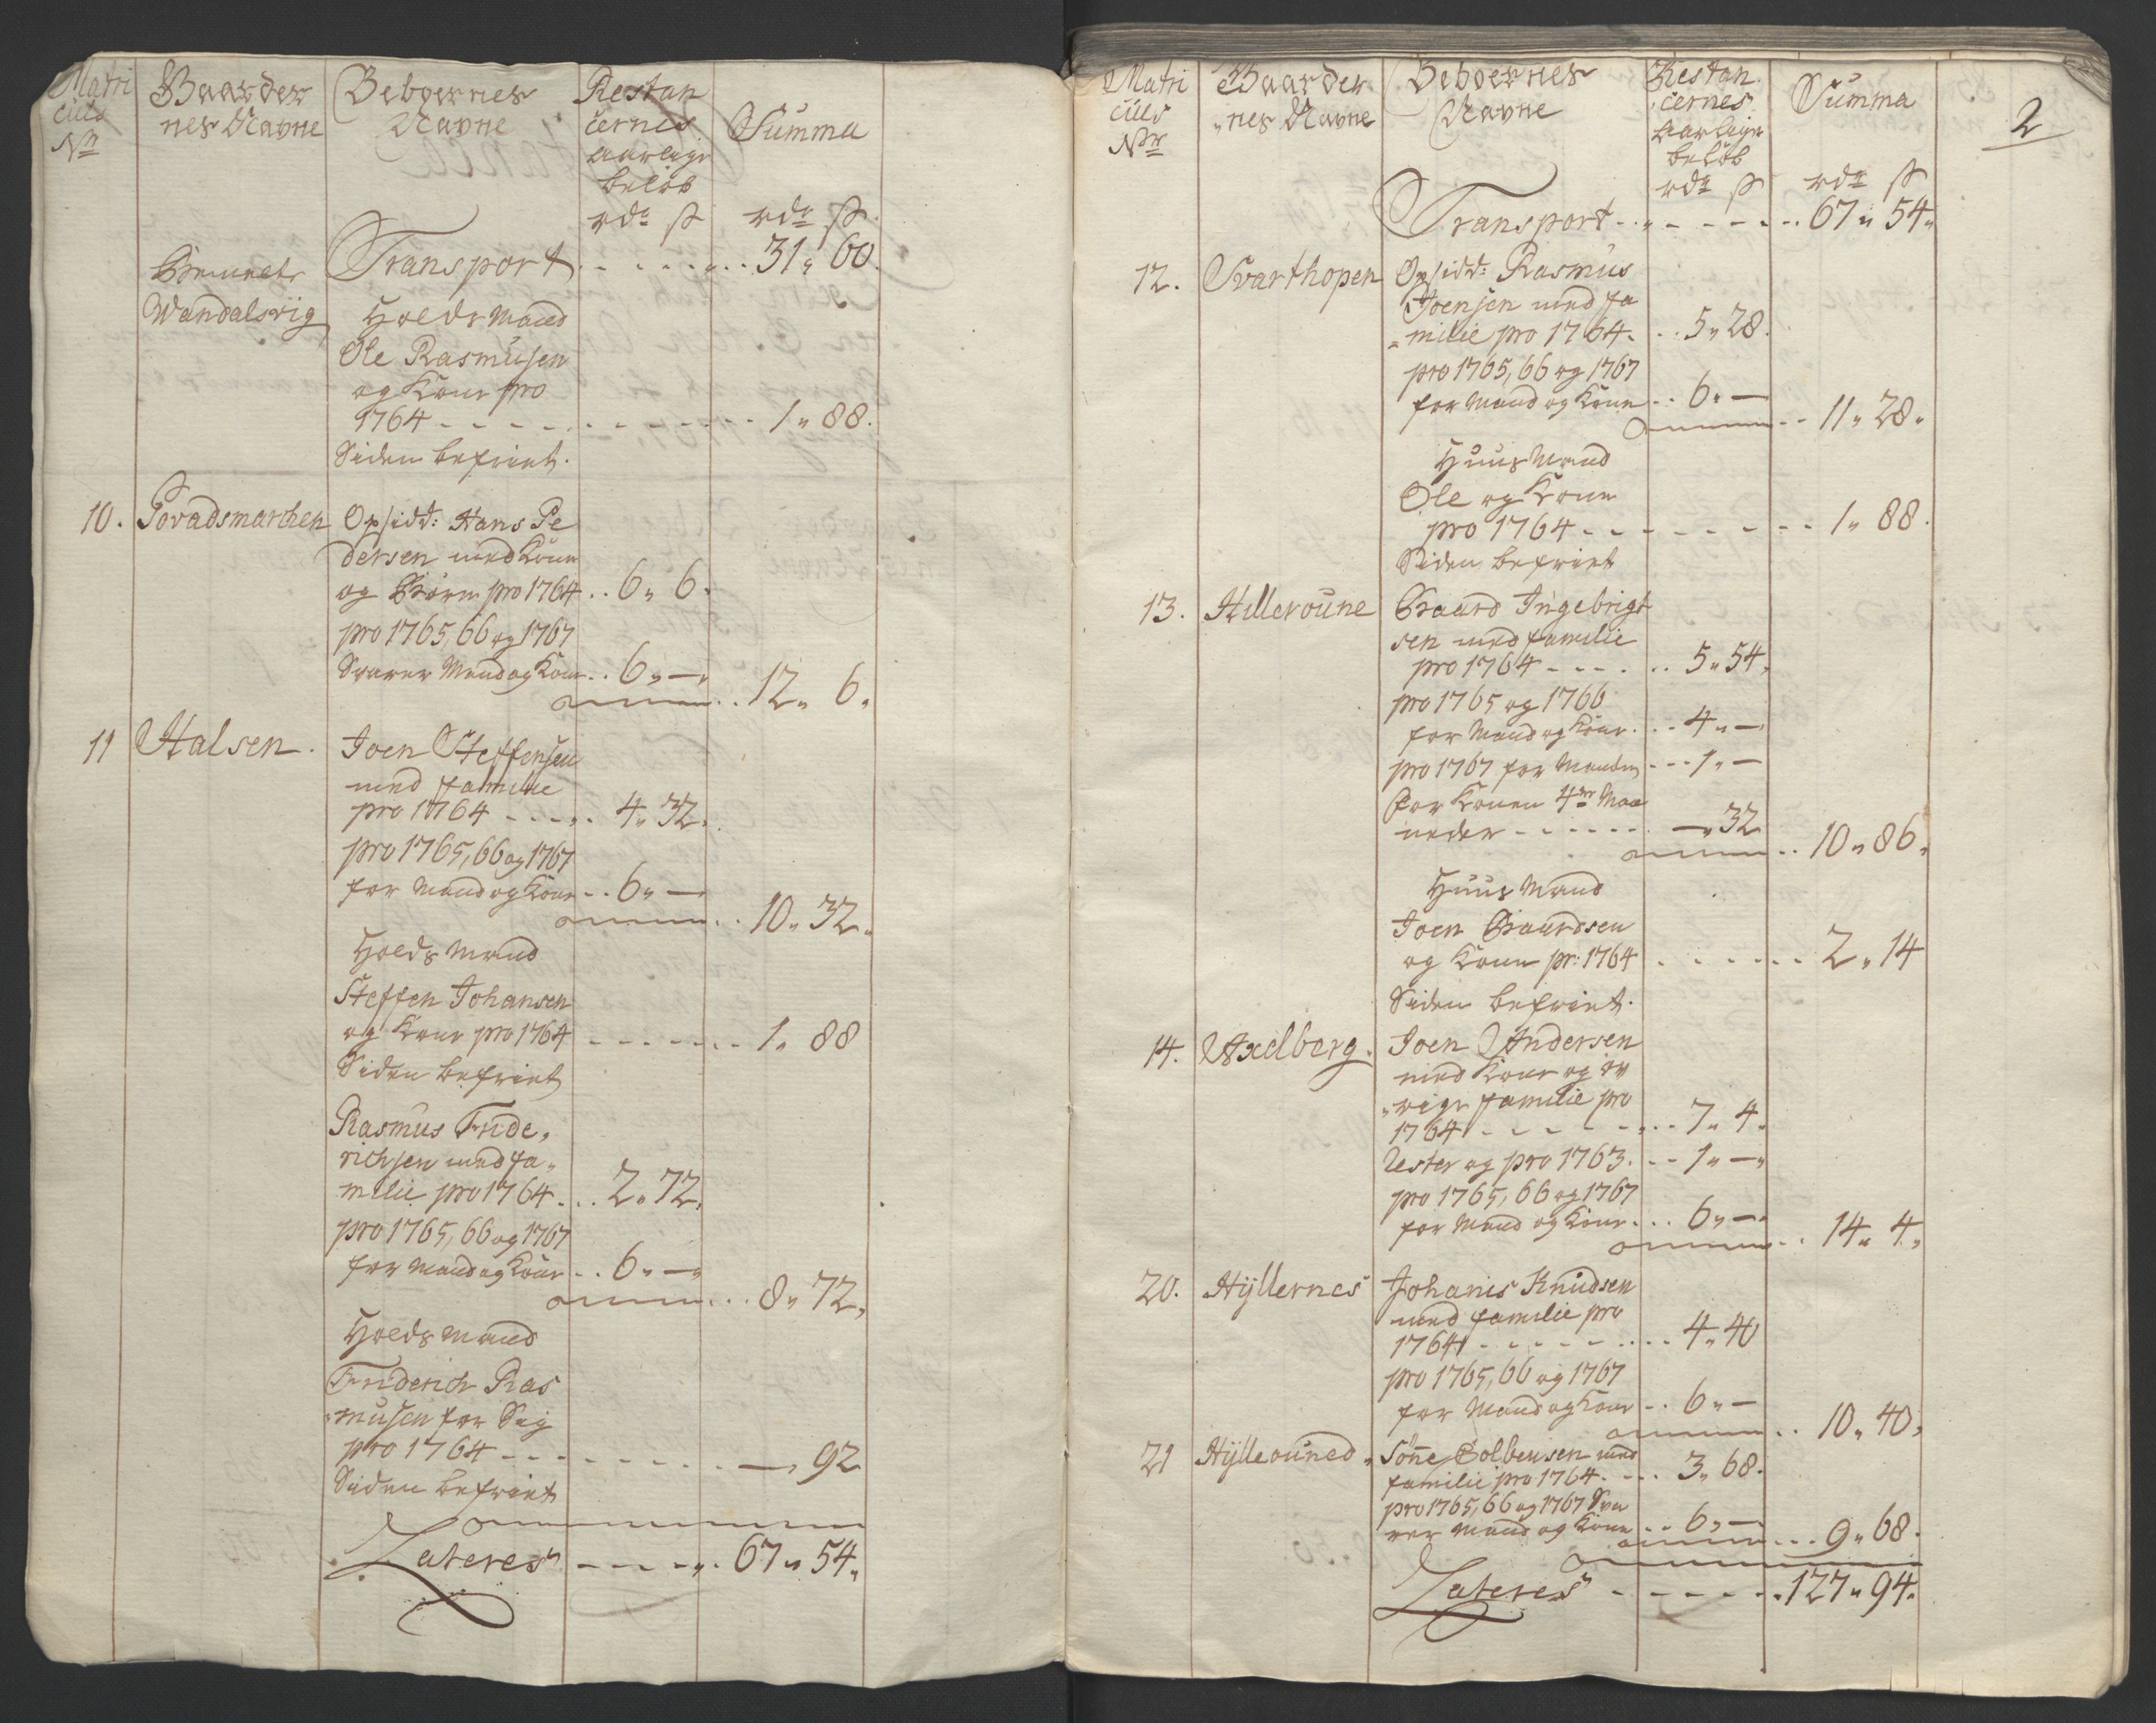 Matri
culs
No
Gaarder
nes Navne
Beboernes
Navne
Restan
cernes
aarlige
beløb
rdr ß
Summa
rdr ß
Transport - - - - 31 " 60.
Wandalsvig
Holds Mand
Ole Rasmusen
og Kone pro
1764 - - - - 1 " 88.
Siden befriet.
10. Povadsmarchen Opsidd: Hans Pe
dersen med Kone
og Børn pro 1764 .. 6 " 6.
pro 1765, 66 og 1767
Svarer Mand og Kone .. 6 " —
12 " 6 "
11 Halsen. Joen Steffensen
med familie
pro 1764 - - - - 4 " 32.
pro 1765, 66 og 1767
for Mand og Kone .. 6 " —
10 " 32 "
Holds Mand
Steffen Johansen
og Kone pro 1764 - - - - 1 " 88
Siden befriet
Rasmus Fride "
richsen med fa "
milie pro 1764 . .. 2 " 72.
pro 1765, 66 og 1767
for Mand og Kone .. 6 " —
8 " 72 "
Holds Mand
Friderich Ras
" musen for Sig
pro 1764 - - - - — " 92
Siden befriet
Lateres - - - - 67 " 54 "
2
Matri
culs
Nr
Gaarder
" nes Navne
Beboernes
Navne
Restan
cernes
aarlige
beløb
rdr ß
Summa
rdr ß
Transport - - - - 67 " 54 "
12. Svarthopen Opsidd: Rasmus
Joensen med fa
" milie pro 1764 . .. 5 " 28.
pro 1765, 66 og 1767
for Mand og Kone .. 6 " —
11 " 28 "
Huus Mand
Ole og Kone
pro 1764 - - - - 1 " 88.
Siden befriet
13. Hilleroune Baard Ingebrigt
sen med familie
pro 1764 - - - - 5 " 54 "
pro 1765 og 1766
for Mand og Kone . .. 4 " —
pro 1767 for Manden - - - 1 " —
For Konen 4re Maa
neder - - - - — " 32
10 " 86 "
Huus Mand
Joen Baardsen
og Kone pr: 1764 - - - - 2 " 14
Siden befriet.
14. Axelberg. Joen Andersen
med Kone og øv
" rige familie pro
1764 - - - - 7 " 4 "
Rester og pro 1763 . - - 1 " — "
pro 1765, 66 og 1767
for Mand og Kone . .. 6 " —
14 " 4 "
20. Hÿllernes Johanis Knudsen
med familie pro
1764 - - - - 4 " 40
pro 1765, 66 og 1767
for Mand og Kone .. 6 " —
10 " 40 "
21 Hÿlleouned " Sønne Colbensen med
familie pro 1764 . - .. 3 " 68.
pro 1765, 66 og 1767 Sva
rer Mand og Kone .. 6 " —
9 " 68.
Lateres - - - - 127 " 94 "